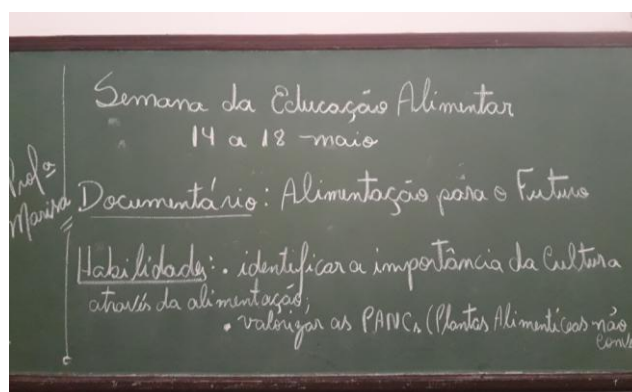 Semana da Educação Alimentar
14 a 18 - maio
Profª
Marisa
Documentário: Alimentação para o Futuro
Habilidades: • identificar a importância da Cultura
através da alimentação;
• valorizar as PANCs (Plantas Alimentíceas não